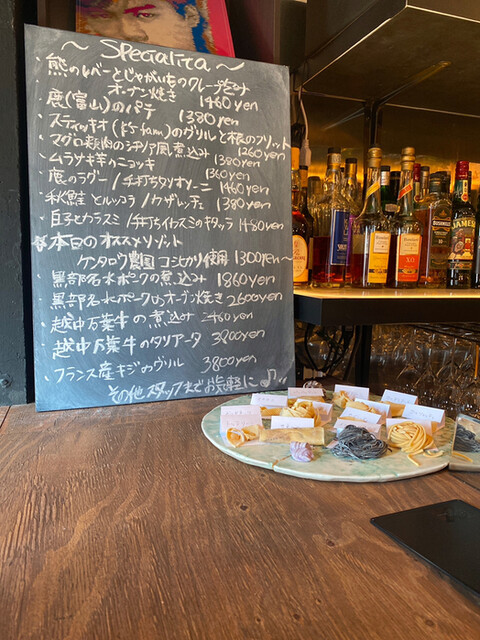 ～ Specialità ～
・熊のレバーとじゃがいものクレープ包み
オーブン焼き 1460yen
・鹿(富山)のパテ 1380yen
・スティッキオ(ks farm)のグリルと根のフリット 1260yen
・マグロ頬肉のシチリア風煮込み 1380yen
・ムラサキ芋のニョッキ 1360yen
・鹿のラグー/手打ちタリオリーニ 1460yen
・秋鮭とルッコラ/カザレッチェ 1380yen
・白子とカラスミ/手打ちイカスミのキタッラ 1480yen
本日のオススメリゾット
ケンタロウ農園コシヒカリ使用 1300yen～
・黒部名水ポークの煮込み 1860yen
・黒部名水ポークのオーブン焼き 2600yen
・越中万葉牛の煮込み 2460yen
・越中万葉牛のタリアータ 3800yen
・フランス産キジのグリル 3800yen
その他スタッフまでお気軽に♪
JAMES
BUSHMILLS
X.O